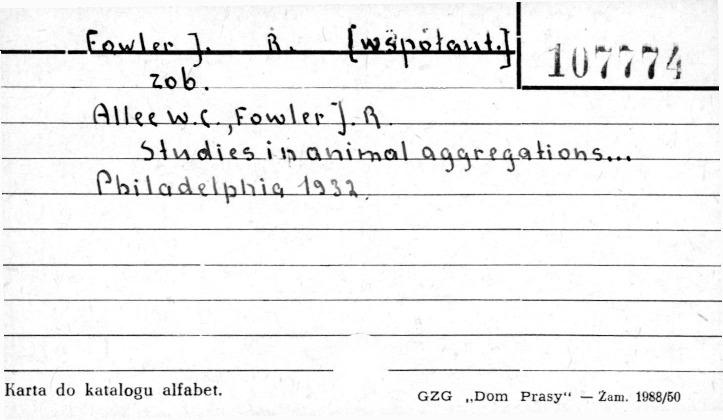 Fowler J. R. [współaut.]
107774
zob.
Allee W.C., Fowler J.R.
Studies in animal aggregations...
Philadelphia 1932.
Karta do katalogu alfabet.
GZG „Dom Prasy“ — Żam. 1988/50